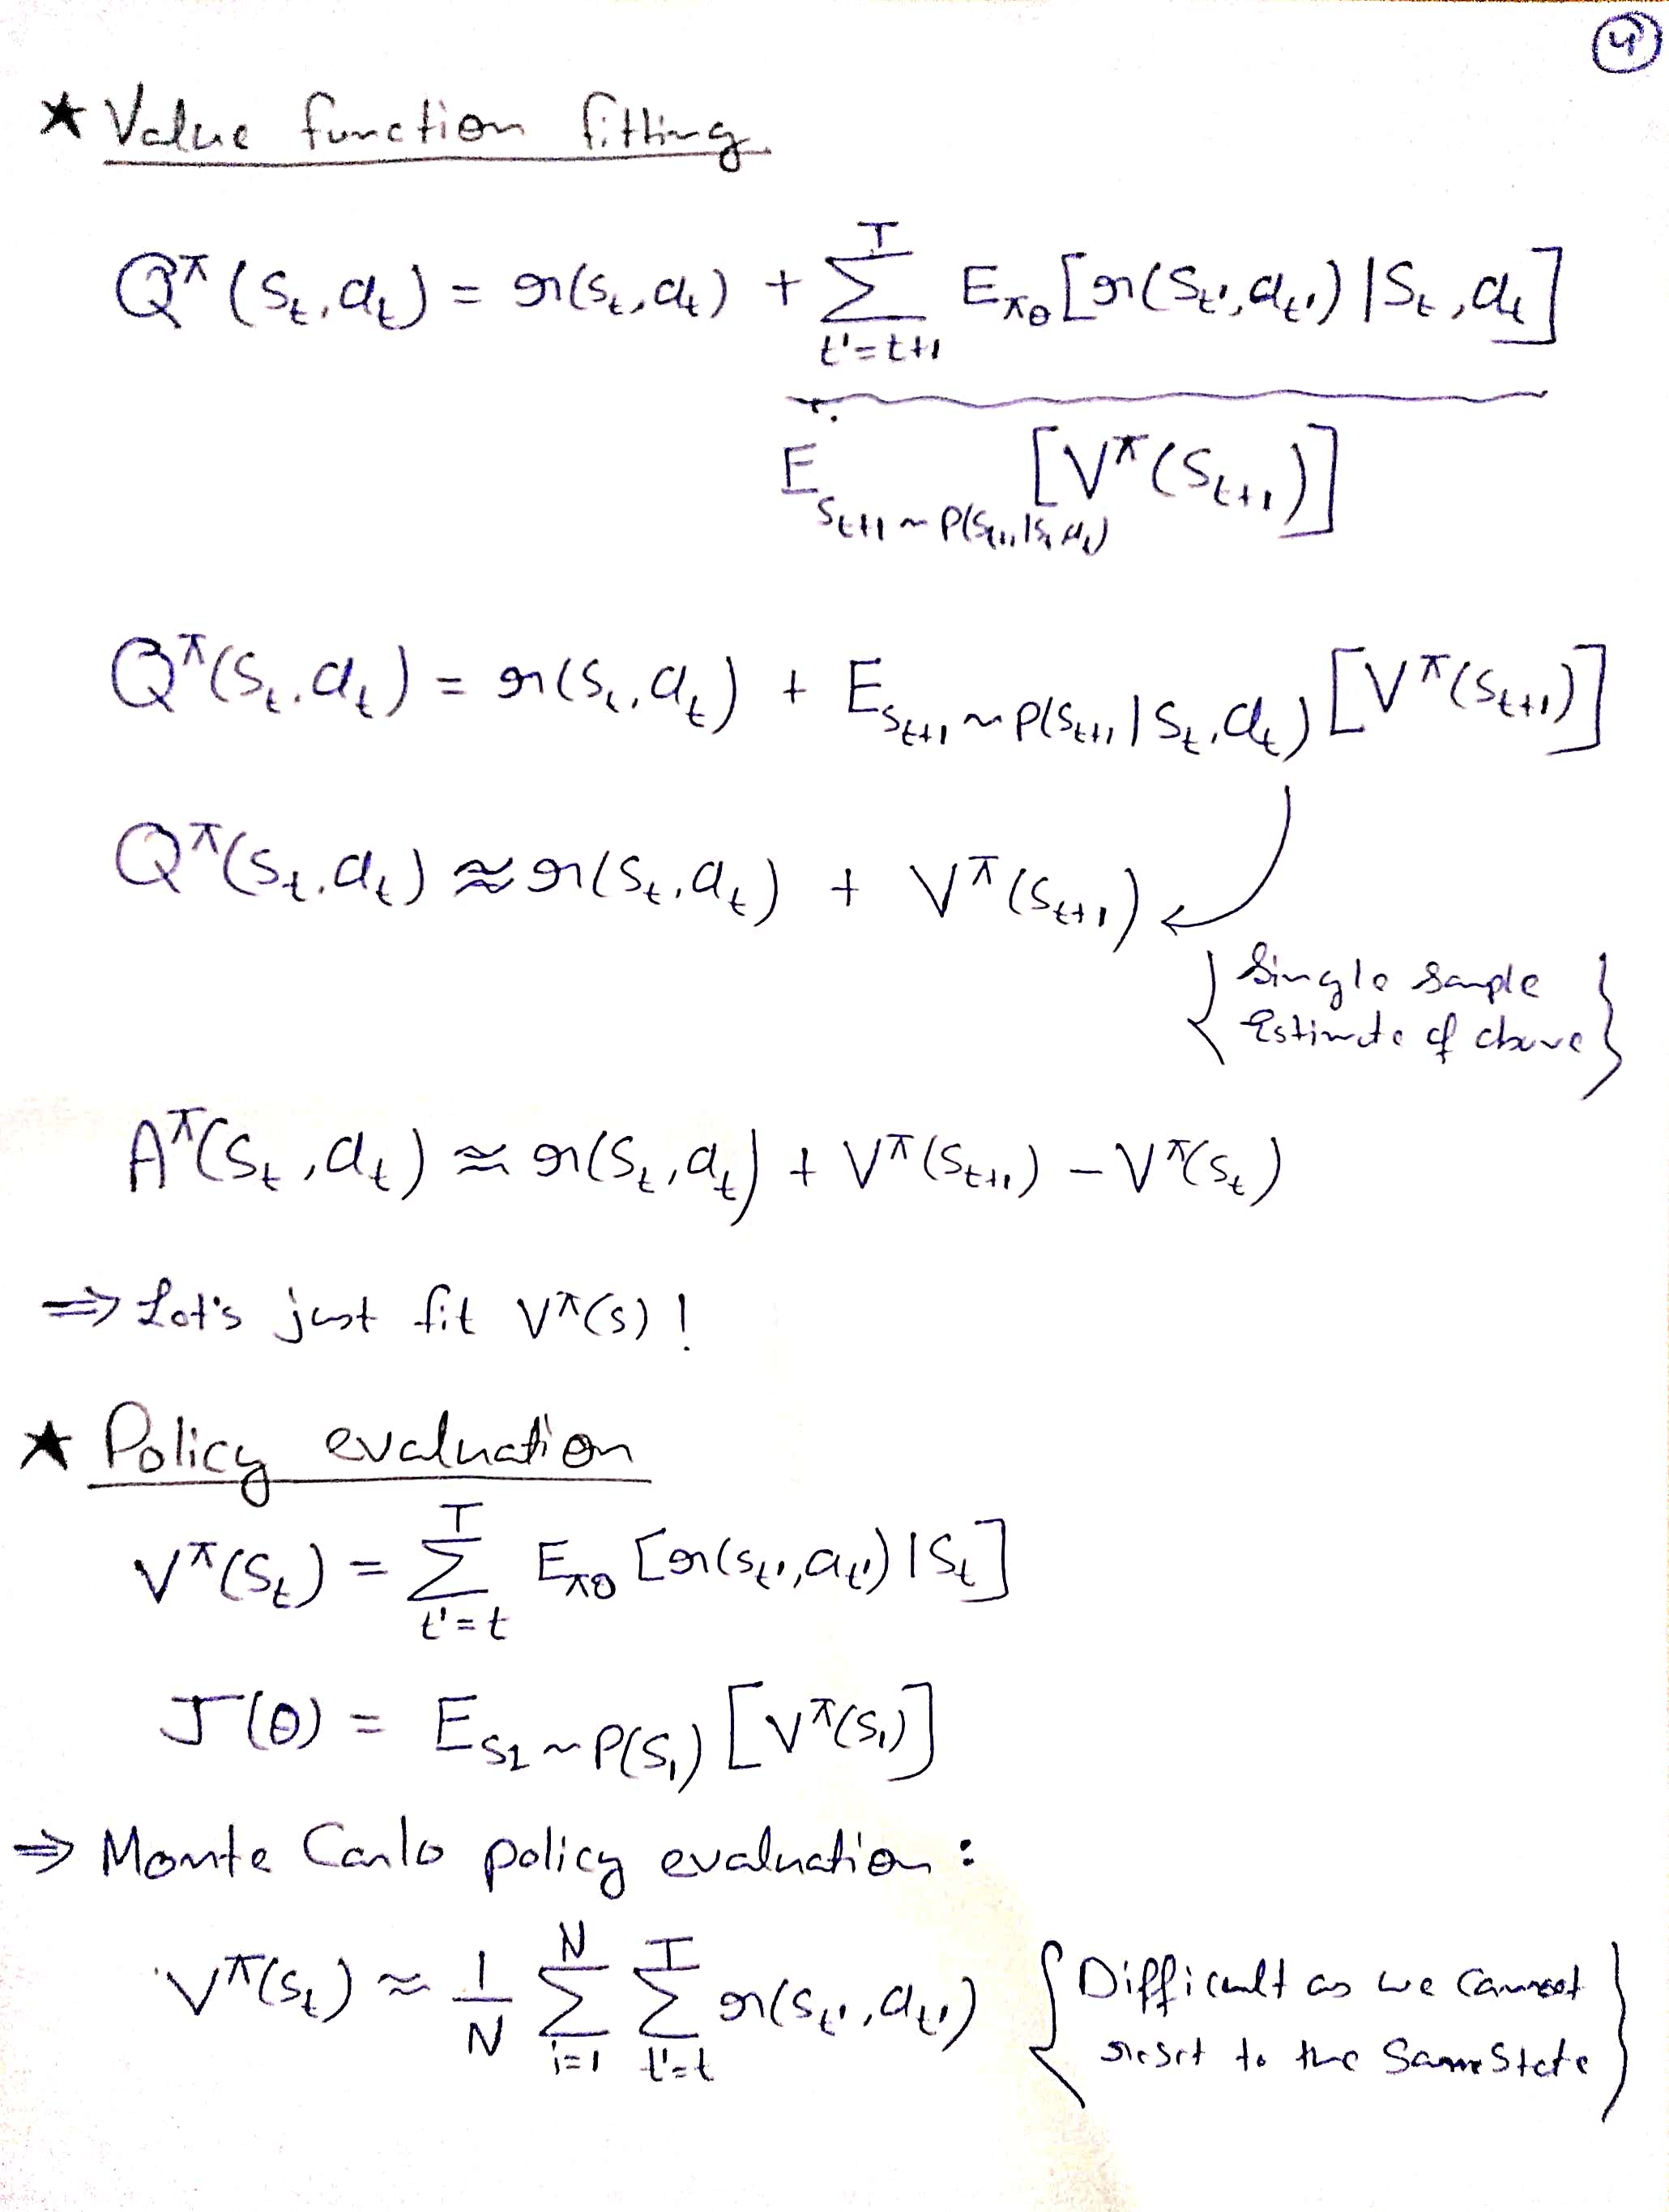 ④
★ Value function fitting
Q^π(s_t, a_t) = r(s_t, a_t) + Σ_{t'=t+1}^{T} E_{πθ}[r(s_t', a_t') | s_t, a_t]
E_{s_{t+1} ~ p(s_{t+1} | s_t, a_t)} [V^π(s_{t+1})]
Q^π(s_t, a_t) = r(s_t, a_t) + E_{s_{t+1} ~ p(s_{t+1} | s_t, a_t)} [V^π(s_{t+1})]
Q^π(s_t, a_t) ≈ r(s_t, a_t) + V^π(s_{t+1})
{ Single sample
Estimate of above }
A^π(s_t, a_t) ≈ r(s_t, a_t) + V^π(s_{t+1}) - V^π(s_t)
⇒ Let's just fit V^π(s) !
★ Policy evaluation
V^π(s_t) = Σ_{t'=t}^{T} E_{πθ} [r(s_t', a_t') | s_t]
J(θ) = E_{s_1 ~ p(s_1)} [V^π(s_1)]
⇒ Monte Carlo policy evaluation :
V^π(s_t) ≈ 1/N Σ_{i=1}^{N} Σ_{t'=t}^{T} r(s_t', a_t') { Difficult as we cannot
reset to the same state }